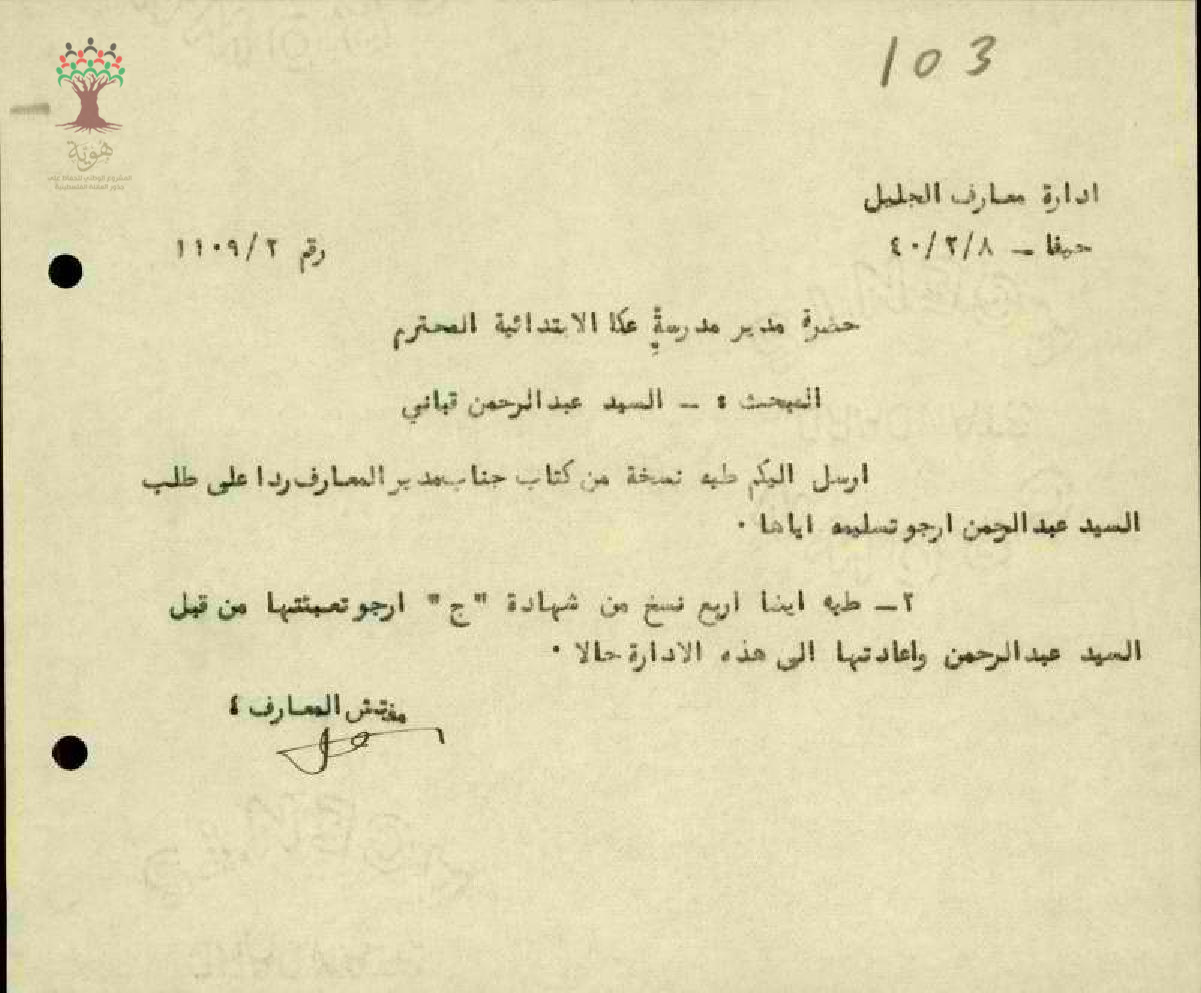 103
هوية
المشروع الوطني للحفاظ على
جذور العائلة الفلسطينية
ادارة معارف الجليل
حيفا – ٤٠/٢/٨
رقم ١١٠٩/٢
حضرة مدير مدرسة عكا الابتدائية المحترم
المبحث : – السيد عبدالرحمن قباني
ارسل اليكم طيه نسخة من كتاب جناب مدير المعارف ردا على طلب
السيد عبدالرحمن ارجو تسليمه اياها ٠
٢– طيه ايضا اربع نسخ من شهادة "ج" ارجو تعبئتها من قبل
السيد عبدالرحمن واعادتها الى هذه الادارة حالا ٠
مفتش المعارف ٤